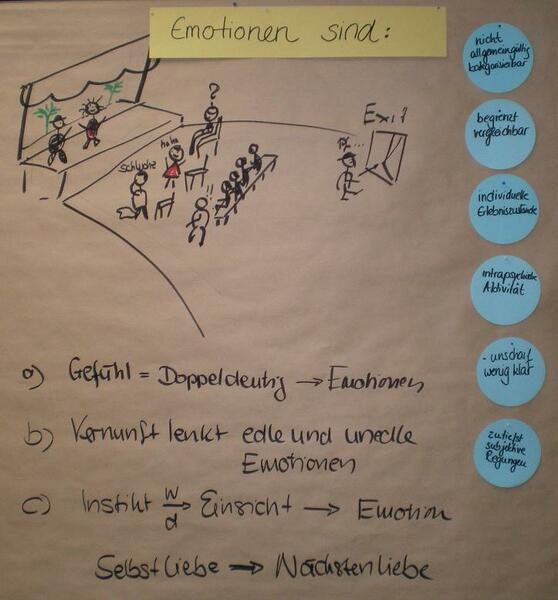 Emotionen sind:
nicht
allgemeingültig
kategorisierbar
begrenzt
vergleichbar
individuelle
Erlebniszustände
intrapsychische
Aktivität
- unscharf
wenig klar
zutiefst
subjektive
Regungen
?
haha
schluchz
!!
Exit
a) Gefühl = Doppeldeutig → Emotionen
b) Vernunft lenkt edle und unedle
Emotionen
c) Instikt w/d → Einsicht → Emotion
Selbstliebe → Nächstenliebe